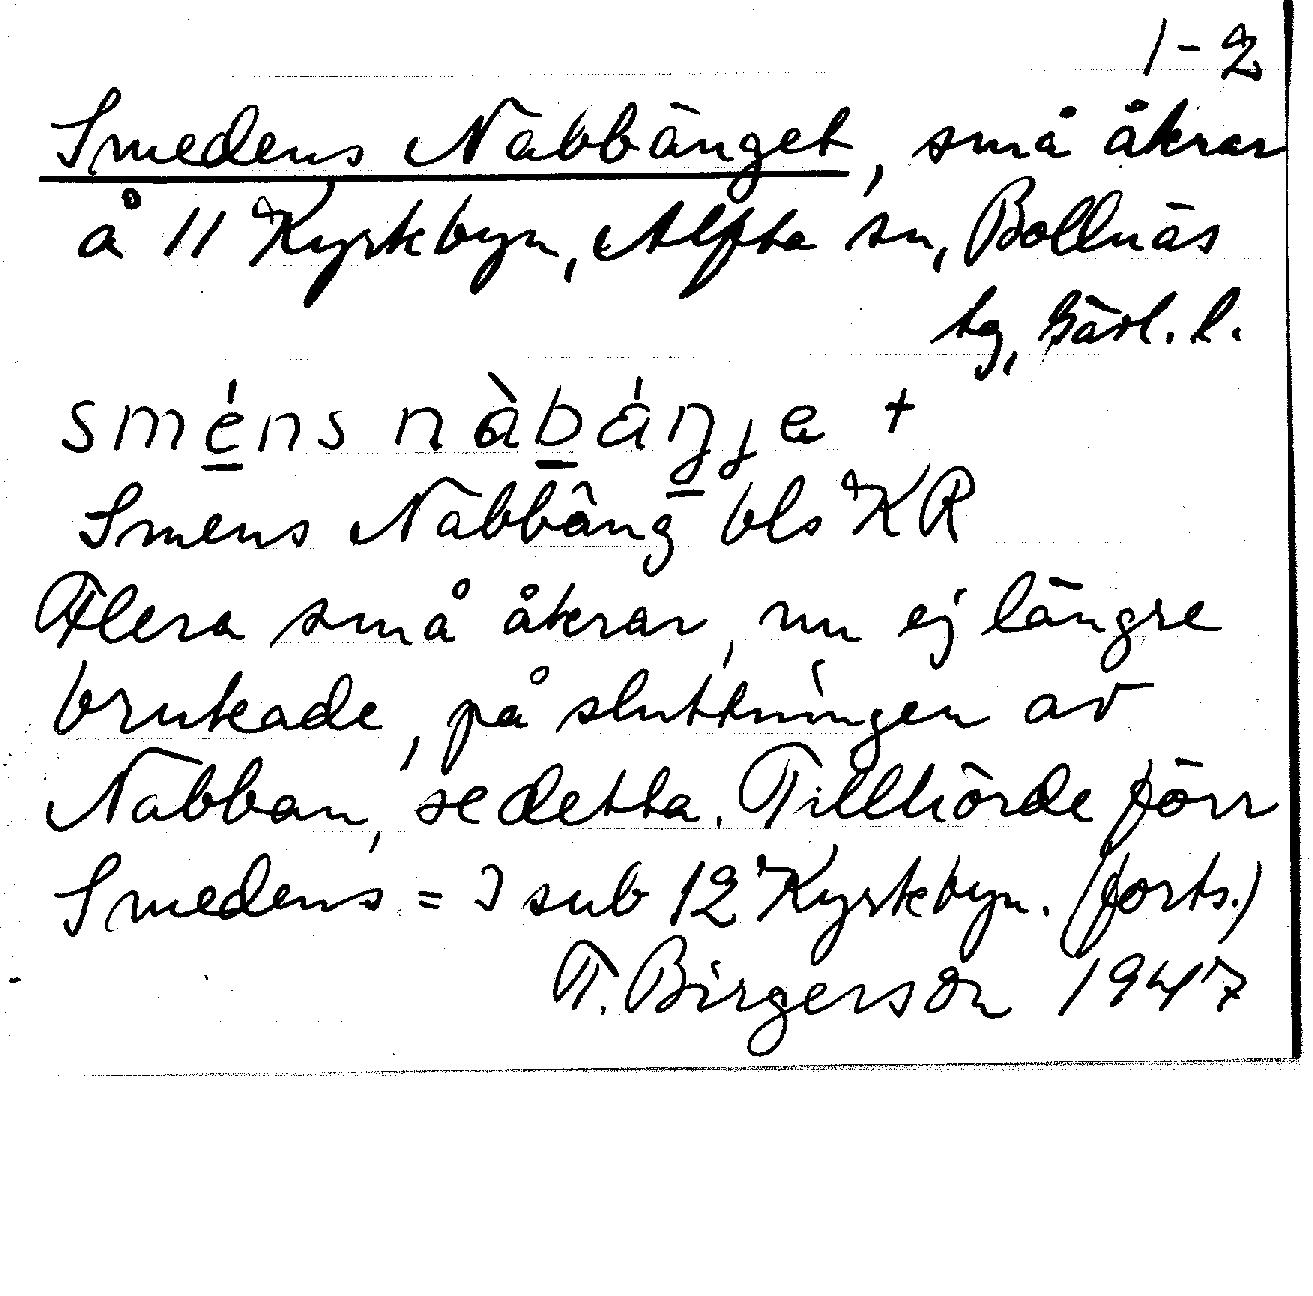 1-2
Smedens Nabbänget, små åkrar
å 11 Kyrkbyn, Alfta sn, Bollnäs
tg, Gävl. l.
sméns nàbáŋɟe +
Smens Nabbäng bls KR
Flera små åkrar, nu ej längre
brukade, på sluttningen av
Nabban, se detta. Tillhörde förr
Smedens = J sub 12 Kyrkbyn. (forts.)
T. Birgerson 1947